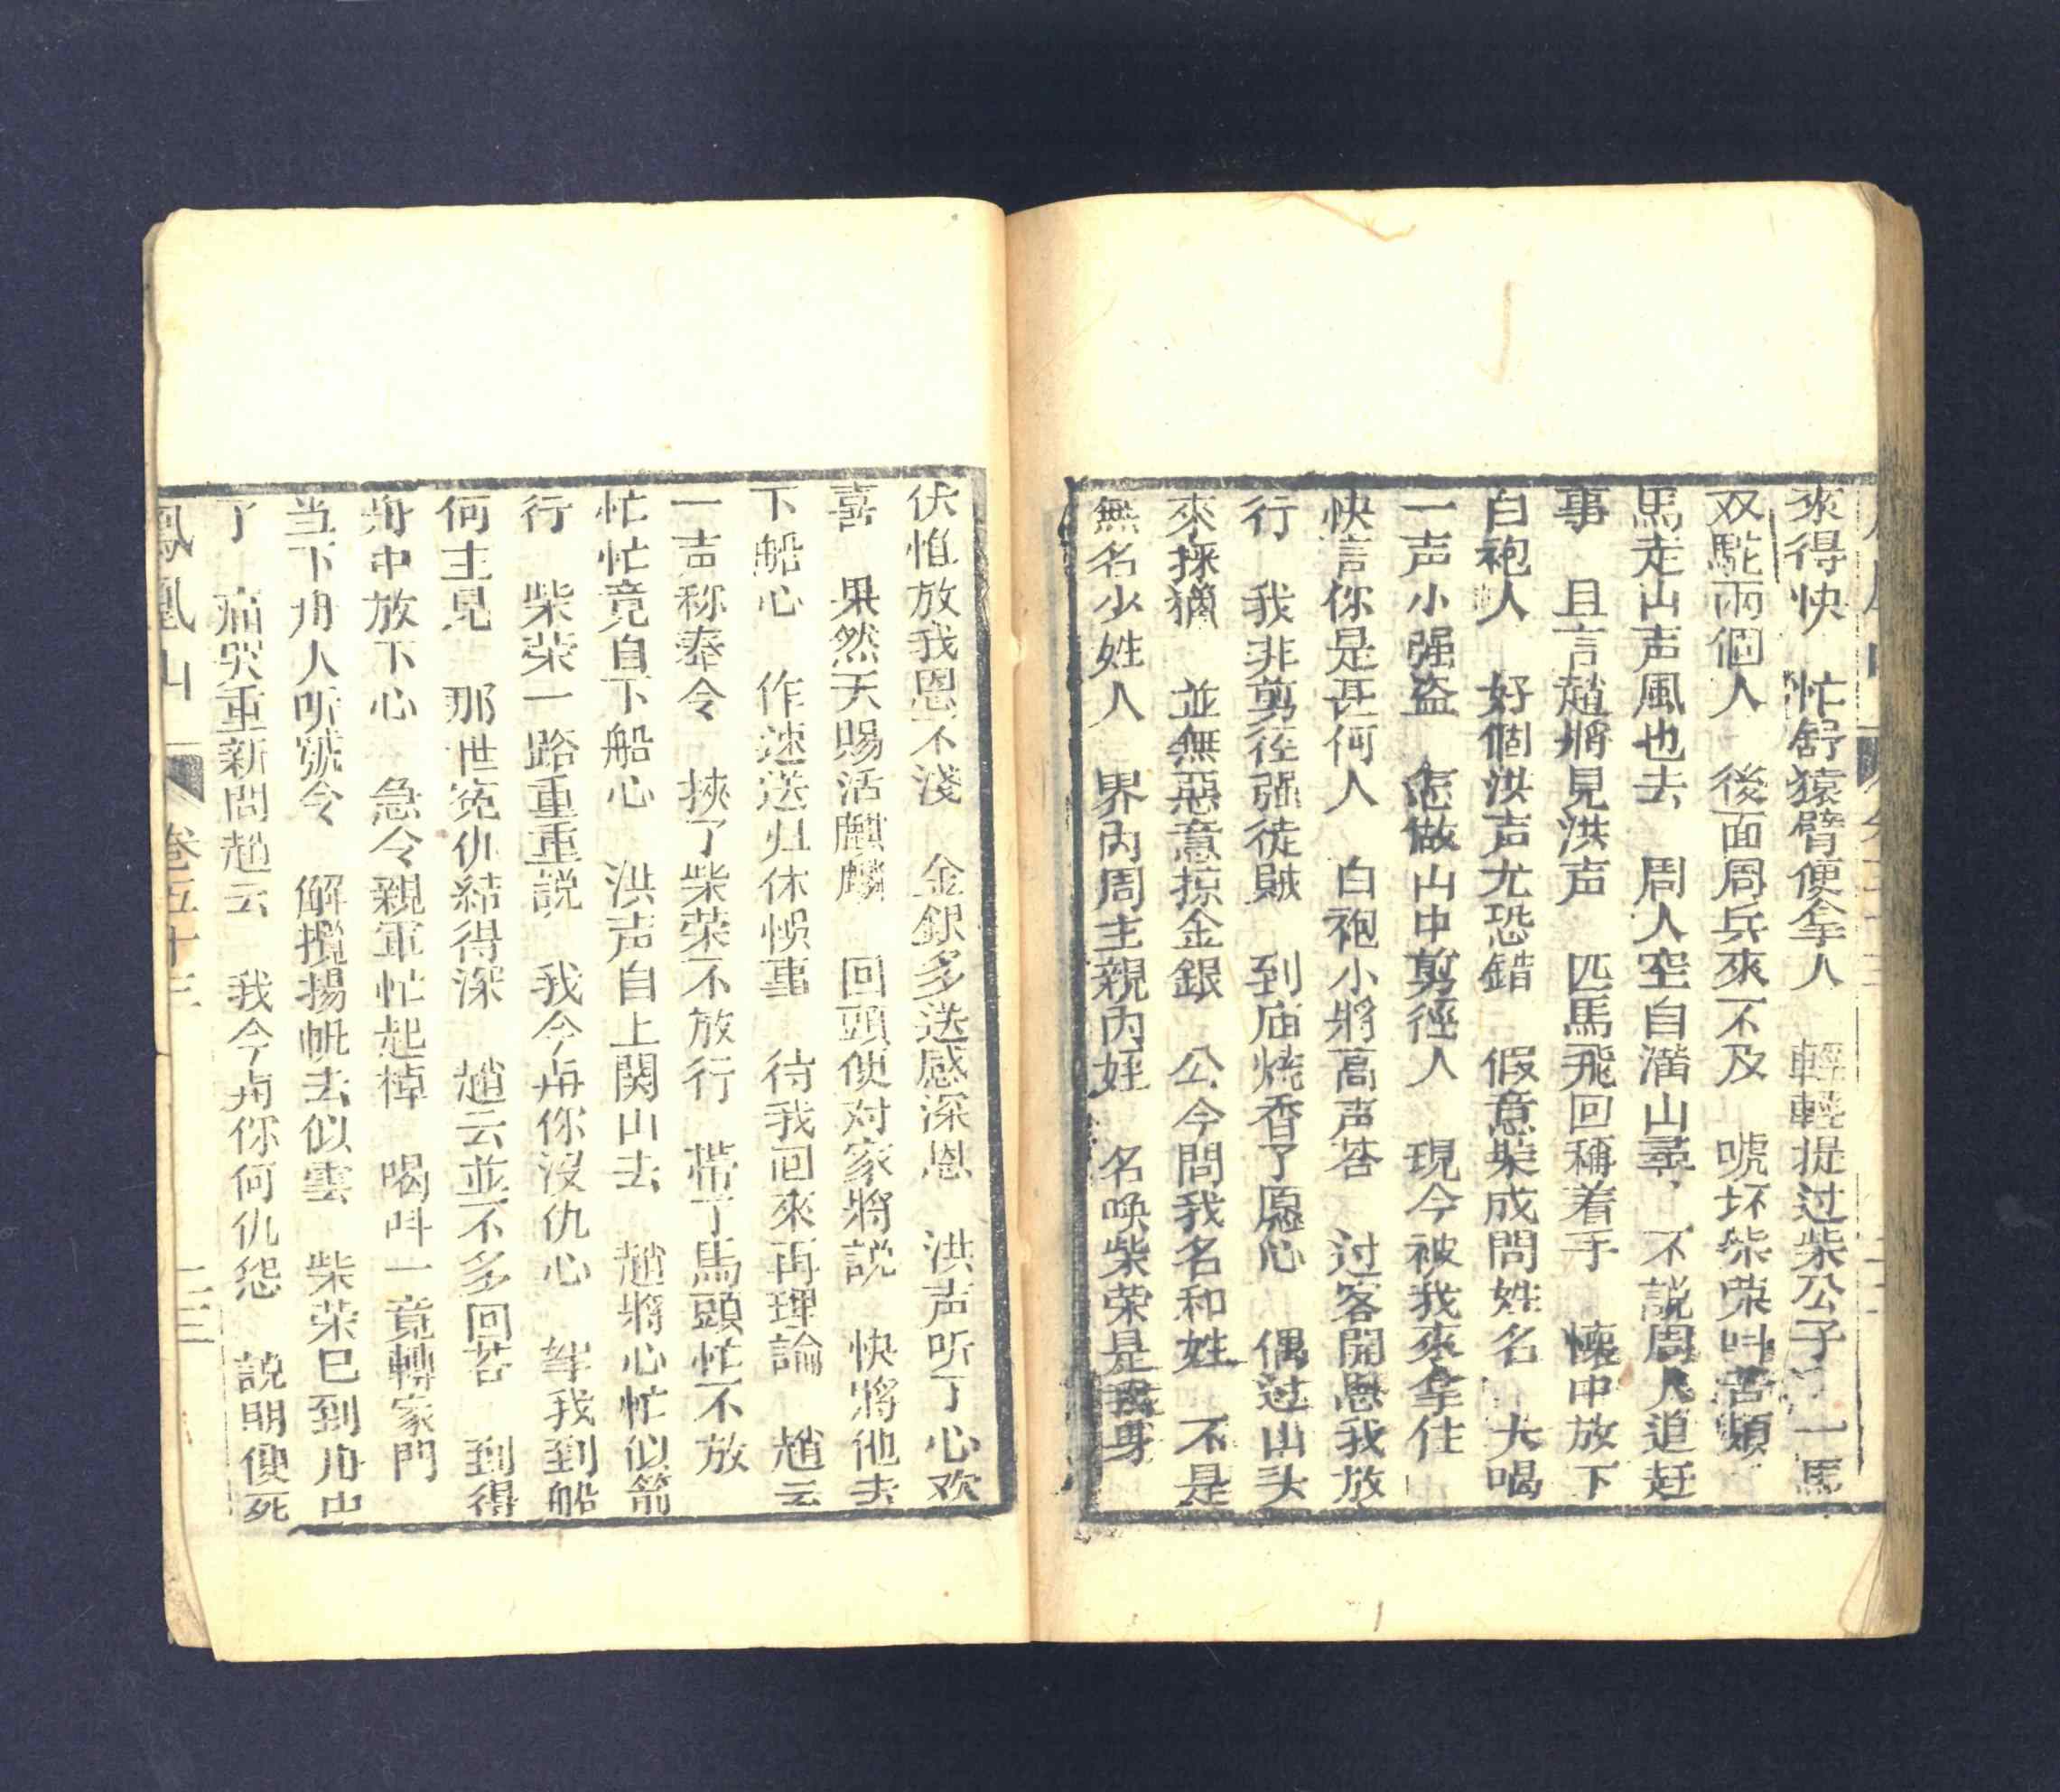 來得快　忙舒猿臂便拿人　輕輕提过柴公子　一馬
双駝兩個人　後面周兵來不及　唬坏柴荣叫苦頻
馬走山声風也去　周人空自满山尋　不說周人追赶
事　且言趙將見洪声　匹馬飛回稱着手　懐中放下
白袍人　好個洪声尤恐錯　假意裝成問姓名　大喝
一声小强盗　怎做山中剪徑人　現今被我來拿住
快言你是甚何人　白袍小將高声荅　过客開恩我放
行　我非剪徑强徒賊　到庙燒香了愿心　偶过山头
來採獵　並無惡意掠金銀　公今問我名和姓　不是
無名少姓人　界內周主親內姪　名唤柴荣是我身
伏惟放我恩不淺　金銀多送感深恩　洪声听了心欢
喜　果然天賜活麒麟　回頭便对家將説　快將他去
下船心　作速送归休悞事　待我回來再理論　趙云
一声称奉令　挾了柴荣不放行　帶了馬頭忙不放
忙忙竟自下船心　洪声自上関山去　趙將心忙似箭
行　柴荣一路重重説　我今与你沒仇心　拿我到船
何主見　那世冤仇結得深　趙云並不多回荅　到得
舟中放下心　急令親軍忙起棹　喝叫一竟轉家門
当下舟人听號令　解攬揚帆去似雲　柴荣已到舟中
了　痛哭重新問趙云　我今与你何仇怨　説明便死
鳳凰山　卷五十三　二三